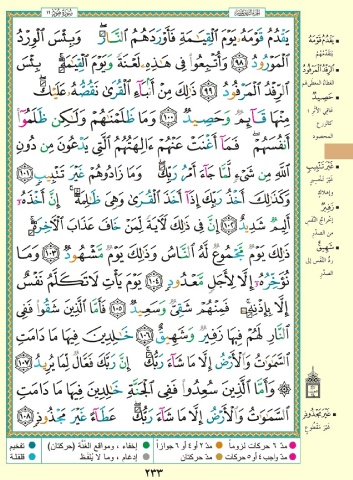 سورة هود ١١
يَقْدُمُ قَوْمَهُ يَوْمَ الْقِيَامَةِ فَأَوْرَدَهُمُ النَّارَ وَبِئْسَ الْوِرْدُ
الْمَوْرُودُ ٩٨ وَأُتْبِعُوا فِي هَذِهِ لَعْنَةً وَيَوْمَ الْقِيَامَةِ بِئْسَ
الرِّفْدُ الْمَرْفُودُ ٩٩ ذَلِكَ مِنْ أَنْبَاءِ الْقُرَى نَقُصُّهُ عَلَيْكَ
مِنْهَا قَائِمٌ وَحَصِيدٌ ١٠٠ وَمَا ظَلَمْنَاهُمْ وَلَكِنْ ظَلَمُوا
أَنْفُسَهُمْ فَمَا أَغْنَتْ عَنْهُمْ آلِهَتُهُمُ الَّتِي يَدْعُونَ مِنْ دُونِ
اللَّهِ مِنْ شَيْءٍ لَمَّا جَاءَ أَمْرُ رَبِّكَ وَمَا زَادُوهُمْ غَيْرَ تَتْبِيبٍ ١٠١
وَكَذَلِكَ أَخْذُ رَبِّكَ إِذَا أَخَذَ الْقُرَى وَهِيَ ظَالِمَةٌ إِنَّ أَخْذَهُ
أَلِيمٌ شَدِيدٌ ١٠٢ إِنَّ فِي ذَلِكَ لَآيَةً لِمَنْ خَافَ عَذَابَ الْآخِرَةِ
ذَلِكَ يَوْمٌ مَجْمُوعٌ لَهُ النَّاسُ وَذَلِكَ يَوْمٌ مَشْهُودٌ ١٠٣ وَمَا
نُؤَخِّرُهُ إِلَّا لِأَجَلٍ مَعْدُودٍ ١٠٤ يَوْمَ يَأْتِ لَا تَكَلَّمُ نَفْسٌ
إِلَّا بِإِذْنِهِ فَمِنْهُمْ شَقِيٌّ وَسَعِيدٌ ١٠٥ فَأَمَّا الَّذِينَ شَقُوا فَفِي
النَّارِ لَهُمْ فِيهَا زَفِيرٌ وَشَهِيقٌ ١٠٦ خَالِدِينَ فِيهَا مَا دَامَتِ
السَّمَوَاتُ وَالْأَرْضُ إِلَّا مَا شَاءَ رَبُّكَ إِنَّ رَبَّكَ فَعَّالٌ لِمَا يُرِيدُ ١٠٧
وَأَمَّا الَّذِينَ سُعِدُوا فَفِي الْجَنَّةِ خَالِدِينَ فِيهَا مَا دَامَتِ
السَّمَوَاتُ وَالْأَرْضُ إِلَّا مَا شَاءَ رَبُّكَ عَطَاءً غَيْرَ مَجْذُوذٍ ١٠٨
يَقْدُمُ قَوْمَهُ
يتقدمهم
الرِّفْدُ الْمَرْفُودُ
حَصِيدٌ
كالزرع
المحصود
غَيْرَ تَتْبِيبٍ
غير تخسير
وإهلاك
زَفِيرٌ
إخراج النفس
من الصدر
شَهِيقٌ
رد النفس إلى
الصدر
غَيْرَ مَجْذُوذٍ
غير مقطوع
مدّ ٦ حركات لزوماً مدّ ٢ أو ٤ أو ٦ جوازاً إخفاء، ومواقع الغُنّة (حركتان) تفخيم
مدّ واجب ٤ أو ٥ حركات مدّ حركتان إدغام، وما لا يُلفَظ قلقلة
٢٣٣